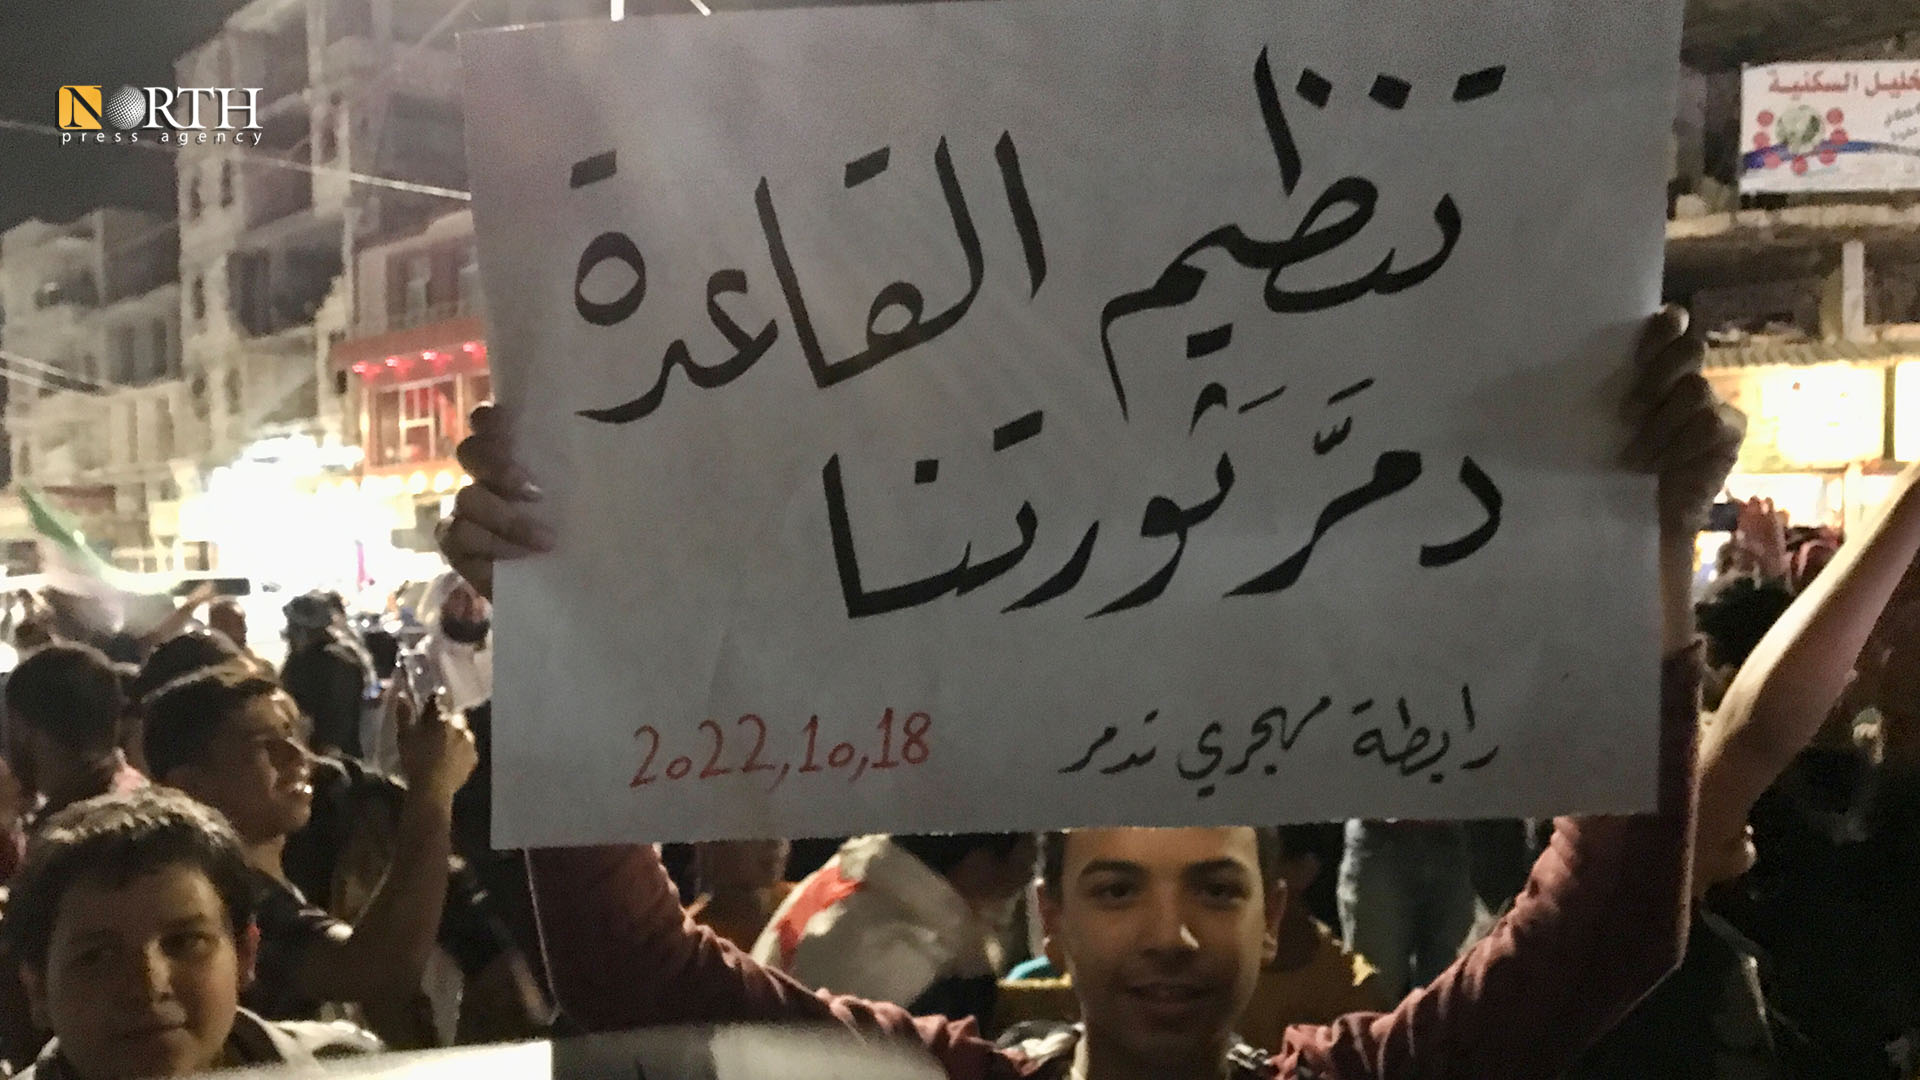 NORTH
press agency
تنظيم القاعدة
دمَّرَ ثورتنا
رابطة مهجري تدمر
2022,10,18
السكنية